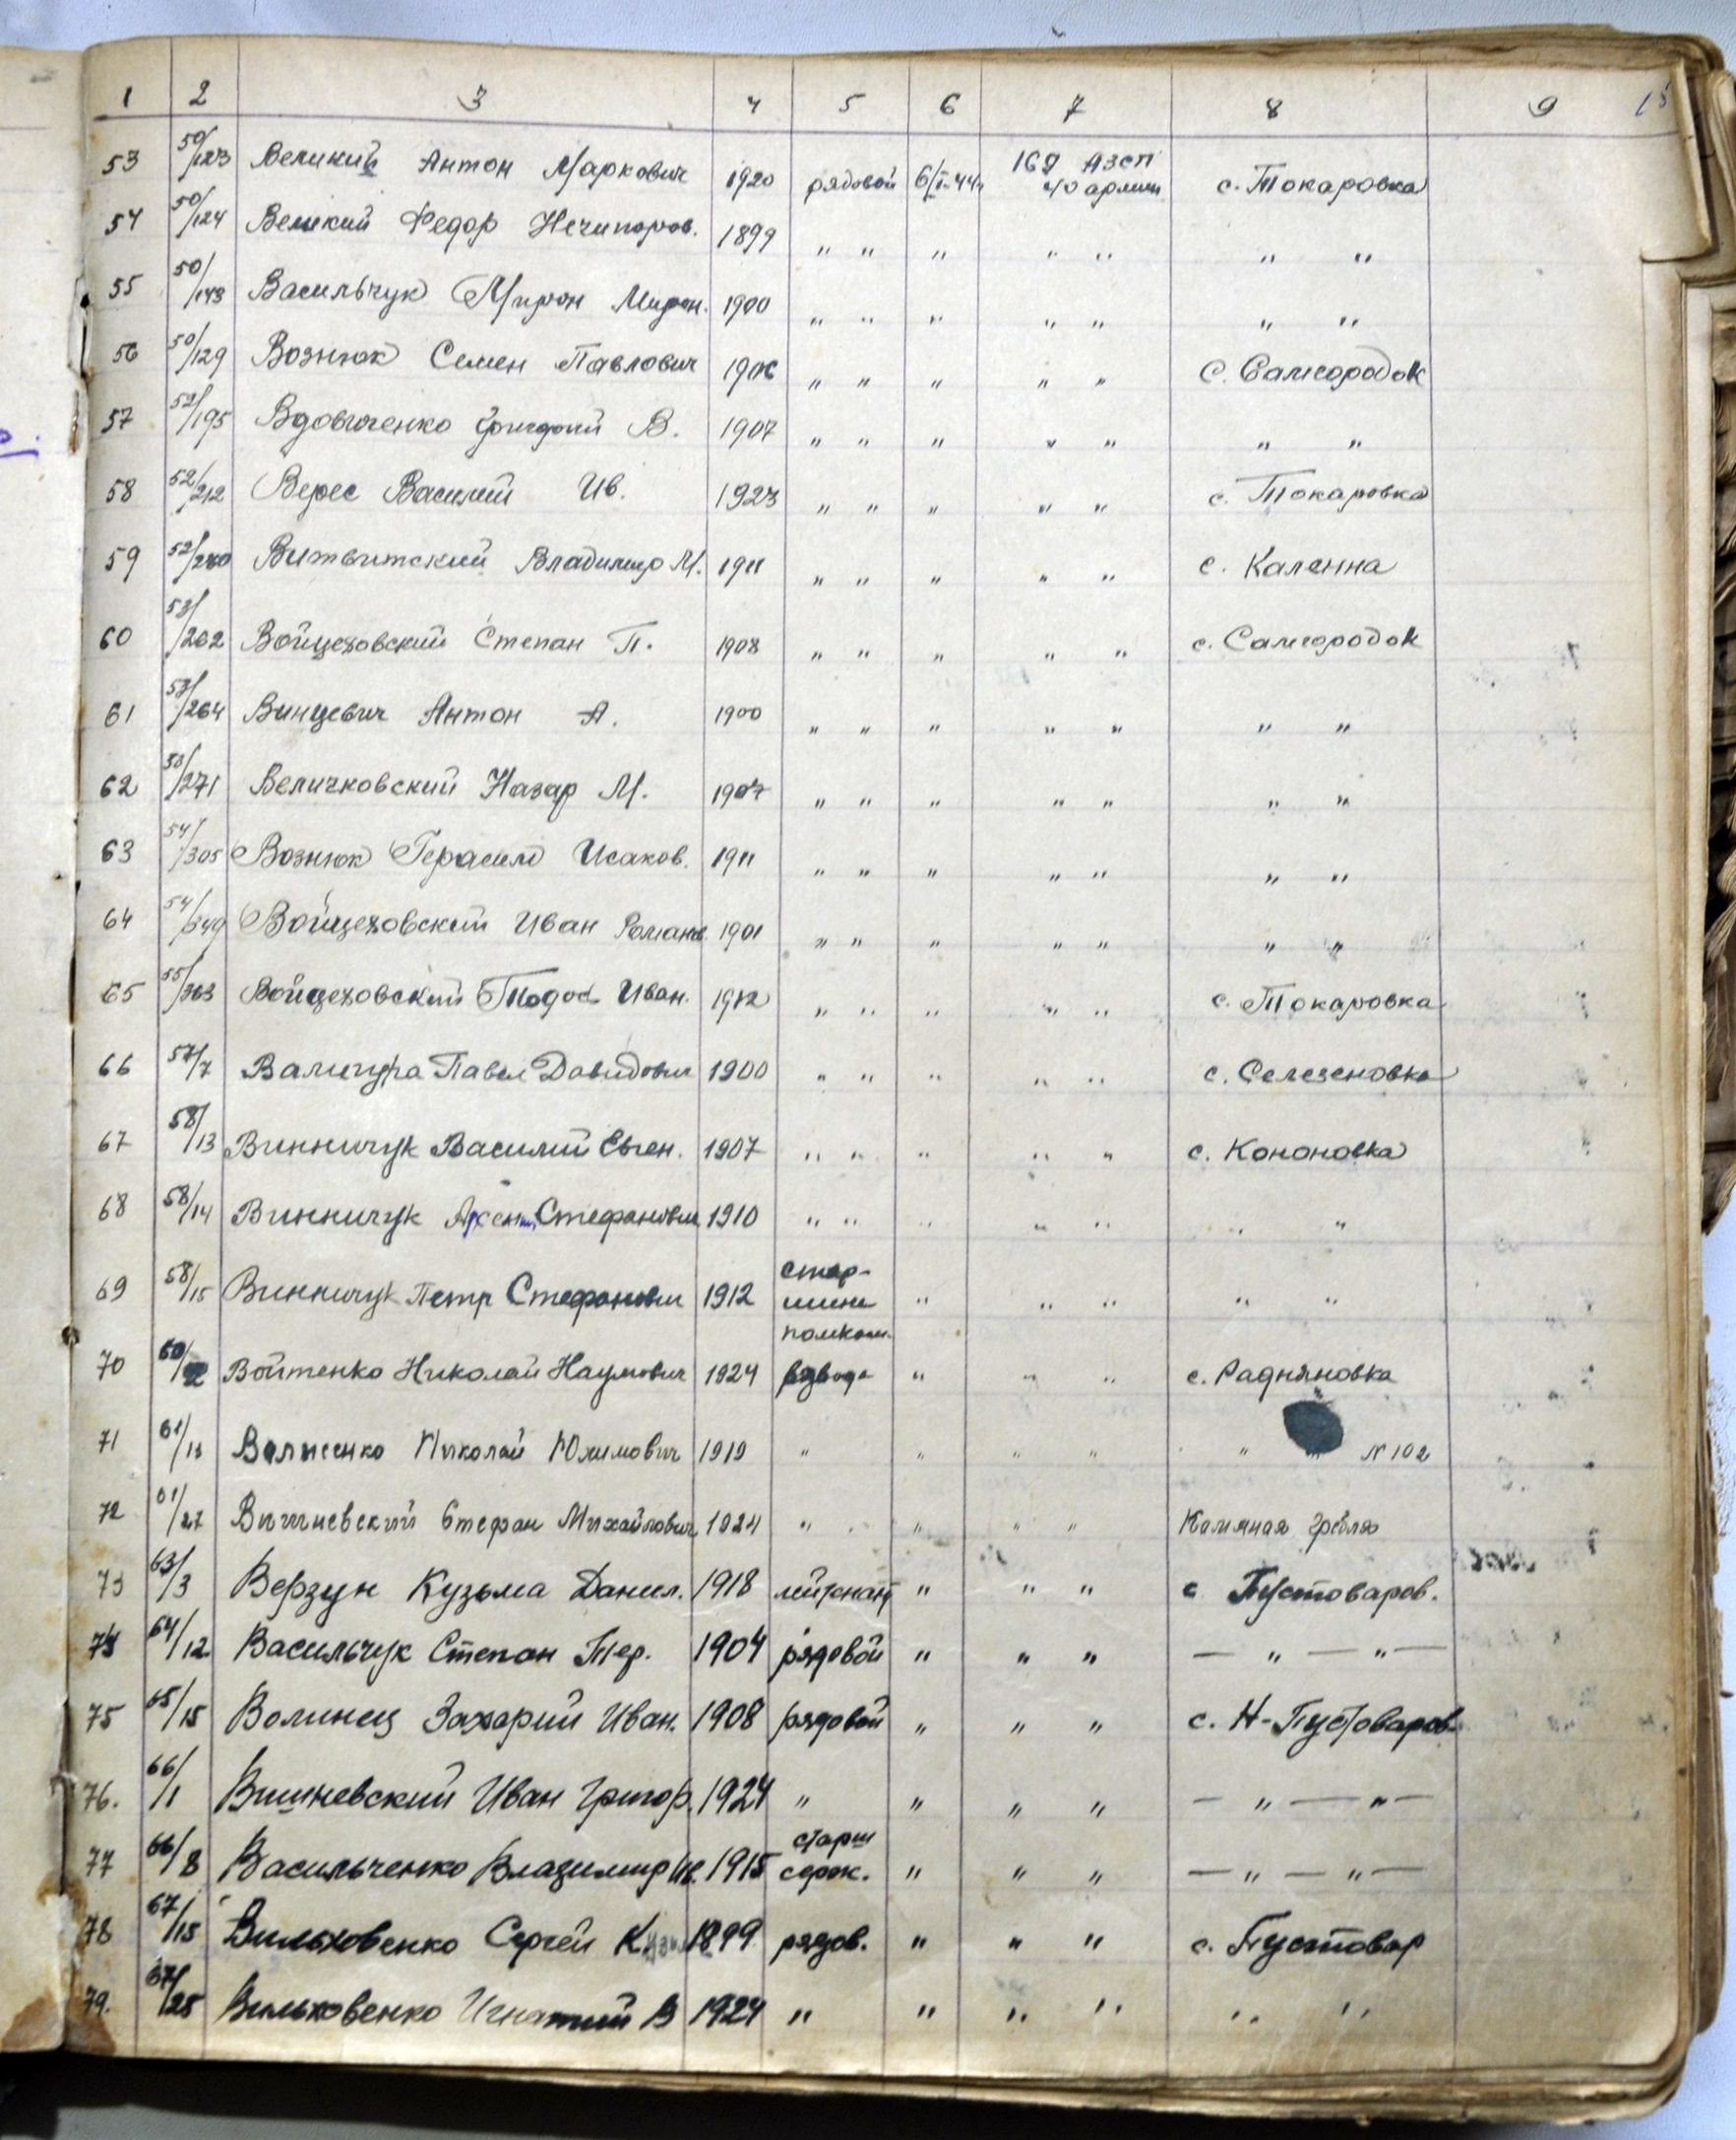 1 2 3 4 5 6 7 8 9 15
53 50/123 Великий Антон Маркович 1920 рядовой 6/I-44г 169 АЗСП 40 армии с. Токаровка
54 50/124 Великий Федор Нечипоров. 1899 " " " " " " "
55 50/148 Васильчук Мирон Мирон. 1900 " " " " " " "
56 50/129 Вознюк Семен Павлович 1906 " " " " " с. Самгородок
57 52/195 Вдовиченко Григорий В. 1907 " " " " " " "
58 52/212 Верес Василий Ив. 1923 " " " " " с. Токаровка
59 52/240 Витвитский Владимир М. 1911 " " " " " с. Каленна
60 53/262 Войцеховский Степан П. 1908 " " " " " с. Самгородок
61 53/264 Винцевич Антон А. 1900 " " " " " " "
62 53/271 Величковский Назар М. 1907 " " " " " " "
63 54/305 Вознюк Герасим Исаков. 1911 " " " " " " "
64 54/349 Войцеховский Иван Романов. 1901 " " " " " " "
65 55/363 Войцеховский Тодос Иван. 1912 " " " " " с. Токаровка
66 57/7 Валигура Павел Давидович 1900 " " " " " с. Селезеновка
67 58/13 Винничук Василий Евген. 1907 " " " " " с. Кононовка
68 58/14 Винничук Арсений Стефанович 1910 " " " " " " "
69 58/15 Винничук Петр Стефанович 1912 стар-
шина " " " " "
помком.
70 60/2 Войтенко Николай Наумович 1924 взвода " " " с. Радняновка
71 61/13 Николай Юхимович 1919 " " " " " " N 102
72 61/27 Вишневский Стефан Михайлович 1924 " " " " Камяная Гребля
73 63/3 Верзун Кузьма Данил. 1918 лейтенант " " " с Пустоваров.
74 64/12 Васильчук Степан Тер. 1904 рядовой " " " — " — " —
75 65/15 Волинец Захарий Иван. 1908 рядовой " " " с. Н-Пустоваров.
76. 66/1 Вишневский Иван Григор. 1924 " " " " — " — " —
77 66/8 Васильченко Владимир Ив. 1915 старш
серж. " " " — " — " —
78 67/15 Вильховенко Сергей 1899 рядов. " " " с. Пустовар
79. 67/25 Вильховенко Игнатий В 1924 " " " " " "